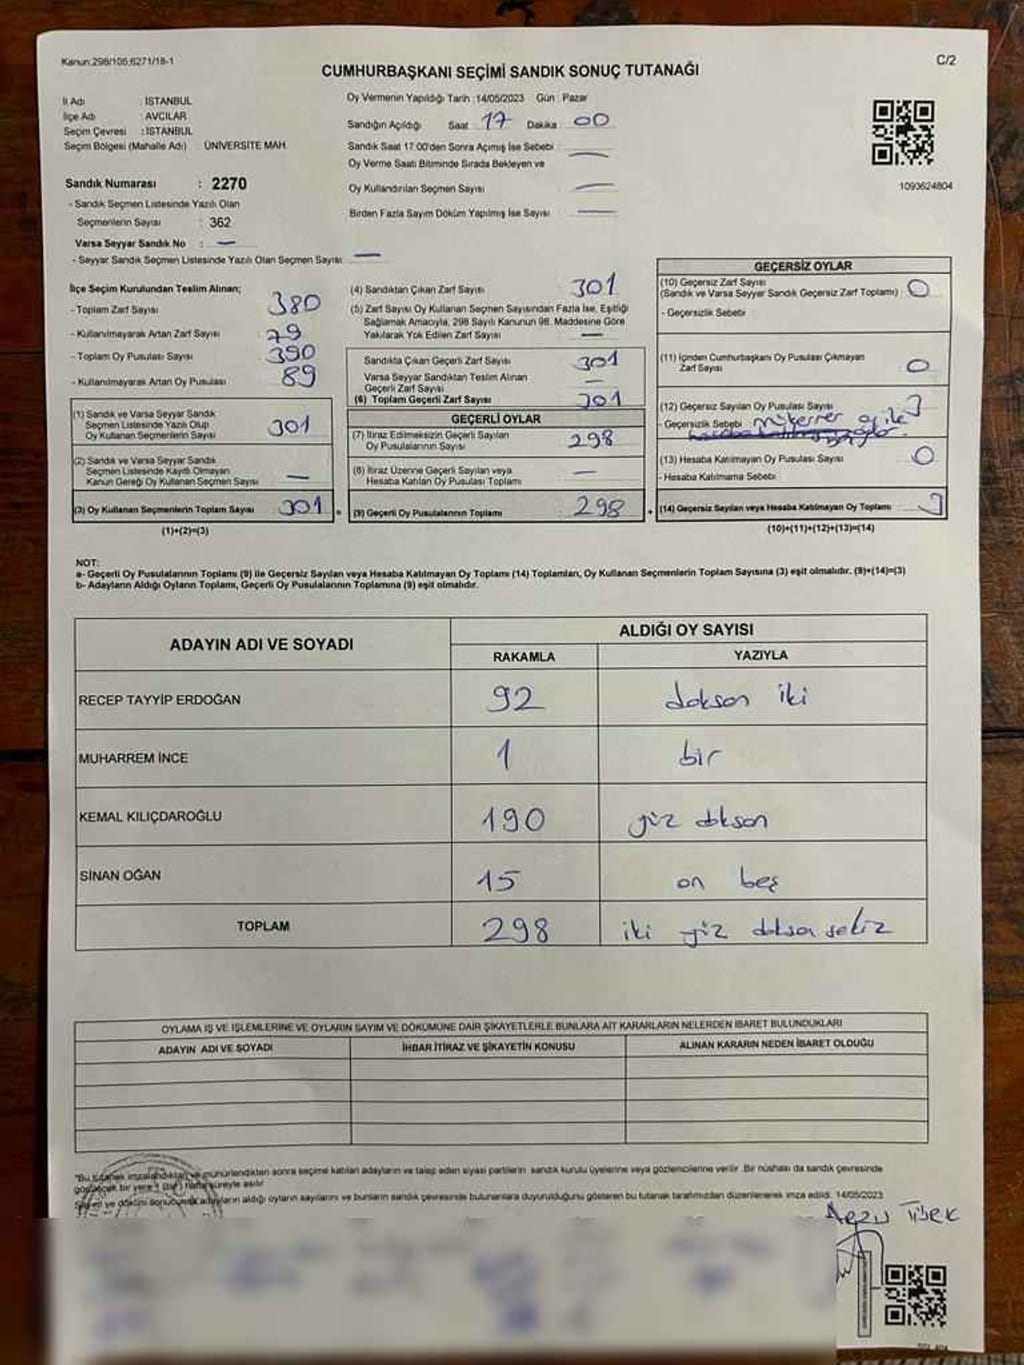 Kanun:298/105;6271/18-1
C/2
CUMHURBAŞKANI SEÇİMİ SANDIK SONUÇ TUTANAĞI
İl Adı : İSTANBUL
İlçe Adı : AVCILAR
Seçim Çevresi : İSTANBUL
Seçim Bölgesi (Mahalle Adı) : ÜNİVERSİTE MAH.
Sandık Numarası : 2270
- Sandık Seçmen Listesinde Yazılı Olan
Seçmenlerin Sayısı : 362
Varsa Seyyar Sandık No : —
- Seyyar Sandık Seçmen Listesinde Yazılı Olan Seçmen Sayısı: —
Oy Vermenin Yapıldığı Tarih :14/05/2023 Gün : Pazar
Sandığın Açıldığı Saat 17 Dakika : 00
Sandık Saat 17:00'den Sonra Açılmış İse Sebebi : —
Oy Verme Saati Bitiminde Sırada Bekleyen ve
Oy Kullandırılan Seçmen Sayısı —
Birden Fazla Sayım Döküm Yapılmış İse Sayısı —
1093624804
İlçe Seçim Kurulundan Teslim Alınan;
- Toplam Zarf Sayısı 380
- Kullanılmayarak Artan Zarf Sayısı 79
- Toplam Oy Pusulası Sayısı 390
- Kullanılmayarak Artan Oy Pusulası 89
(1) Sandık ve Varsa Seyyar Sandık
Seçmen Listesinde Yazılı Olup
Oy Kullanan Seçmenlerin Sayısı 301
(2) Sandık ve Varsa Seyyar Sandık
Seçmen Listesinde Kayıtlı Olmayan
Kanun Gereği Oy Kullanan Seçmen Sayısı —
(3) Oy Kullanan Seçmenlerin Toplam Sayısı 301
(1)+(2)=(3)
(4) Sandıktan Çıkan Zarf Sayısı 301
(5) Zarf Sayısı Oy Kullanan Seçmen Sayısından Fazla İse, Eşitliği
Sağlamak Amacıyla, 298 Sayılı Kanunun 98. Maddesine Göre
Yakılarak Yok Edilen Zarf Sayısı —
Sandıkta Çıkan Geçerli Zarf Sayısı 301
Varsa Seyyar Sandıktan Teslim Alınan
Geçerli Zarf Sayısı —
(6) Toplam Geçerli Zarf Sayısı 301
GEÇERLİ OYLAR
(7) İtiraz Edilmeksizin Geçerli Sayılan
Oy Pusulalarının Sayısı 298
(8) İtiraz Üzerine Geçerli Sayılan veya
Hesaba Katılan Oy Pusulası Toplamı —
(9) Geçerli Oy Pusulalarının Toplamı 298
GEÇERSİZ OYLAR
(10) Geçersiz Zarf Sayısı
(Sandık ve Varsa Seyyar Sandık Geçersiz Zarf Toplamı) : 0
- Geçersizlik Sebebi
(11) İçinden Cumhurbaşkanı Oy Pusulası Çıkmayan
Zarf Sayısı 0
(12) Geçersiz Sayılan Oy Pusulası Sayısı 3
- Geçersizlik Sebebi mükerrer
(13) Hesaba Katılmayan Oy Pusulası Sayısı 0
- Hesaba Katılmama Sebebi
(14) Geçersiz Sayılan veya Hesaba Katılmayan Oy Toplamı 3
(10)+(11)+(12)+(13)=(14)
NOT:
a- Geçerli Oy Pusulalarının Toplamı (9) ile Geçersiz Sayılan veya Hesaba Katılmayan Oy Toplamı (14) Toplamları, Oy Kullanan Seçmenlerin Toplam Sayısına (3) eşit olmalıdır. (9)+(14)=(3)
b- Adayların Aldığı Oyların Toplamı, Geçerli Oy Pusulalarının Toplamına (9) eşit olmalıdır.
ADAYIN ADI VE SOYADI ALDIĞI OY SAYISI
RAKAMLA YAZIYLA
RECEP TAYYİP ERDOĞAN 92 doksan iki
MUHARREM İNCE 1 bir
KEMAL KILIÇDAROĞLU 190 yüz doksan
SİNAN OĞAN 15 on beş
TOPLAM 298 iki yüz doksan sekiz
OYLAMA İŞ VE İŞLEMLERİNE VE OYLARIN SAYIM VE DÖKÜMÜNE DAİR ŞİKAYETLERLE BUNLARA AİT KARARLARIN NELERDEN İBARET BULUNDUKLARI
ADAYIN ADI VE SOYADI İHBAR İTİRAZ VE ŞİKAYETİN KONUSU ALINAN KARARIN NEDEN İBARET OLDUĞU
"Bu tutanak imzalandıktan ve mühürlendikten sonra seçime katılan adayların ve talep eden siyasi partilerin sandık kurulu üyelerine veya gözlemcilerine verilir. Bir nüshası da sandık çevresinde
bir yere süreyle asılır.
ve döküm sonucunda adayların aldığı oyların sayılarını ve bunların sandık çevresinde bulunanlara duyurulduğunu gösteren bu tutanak tarafımızdan düzenlenerek imza edildi. 14/05/2023